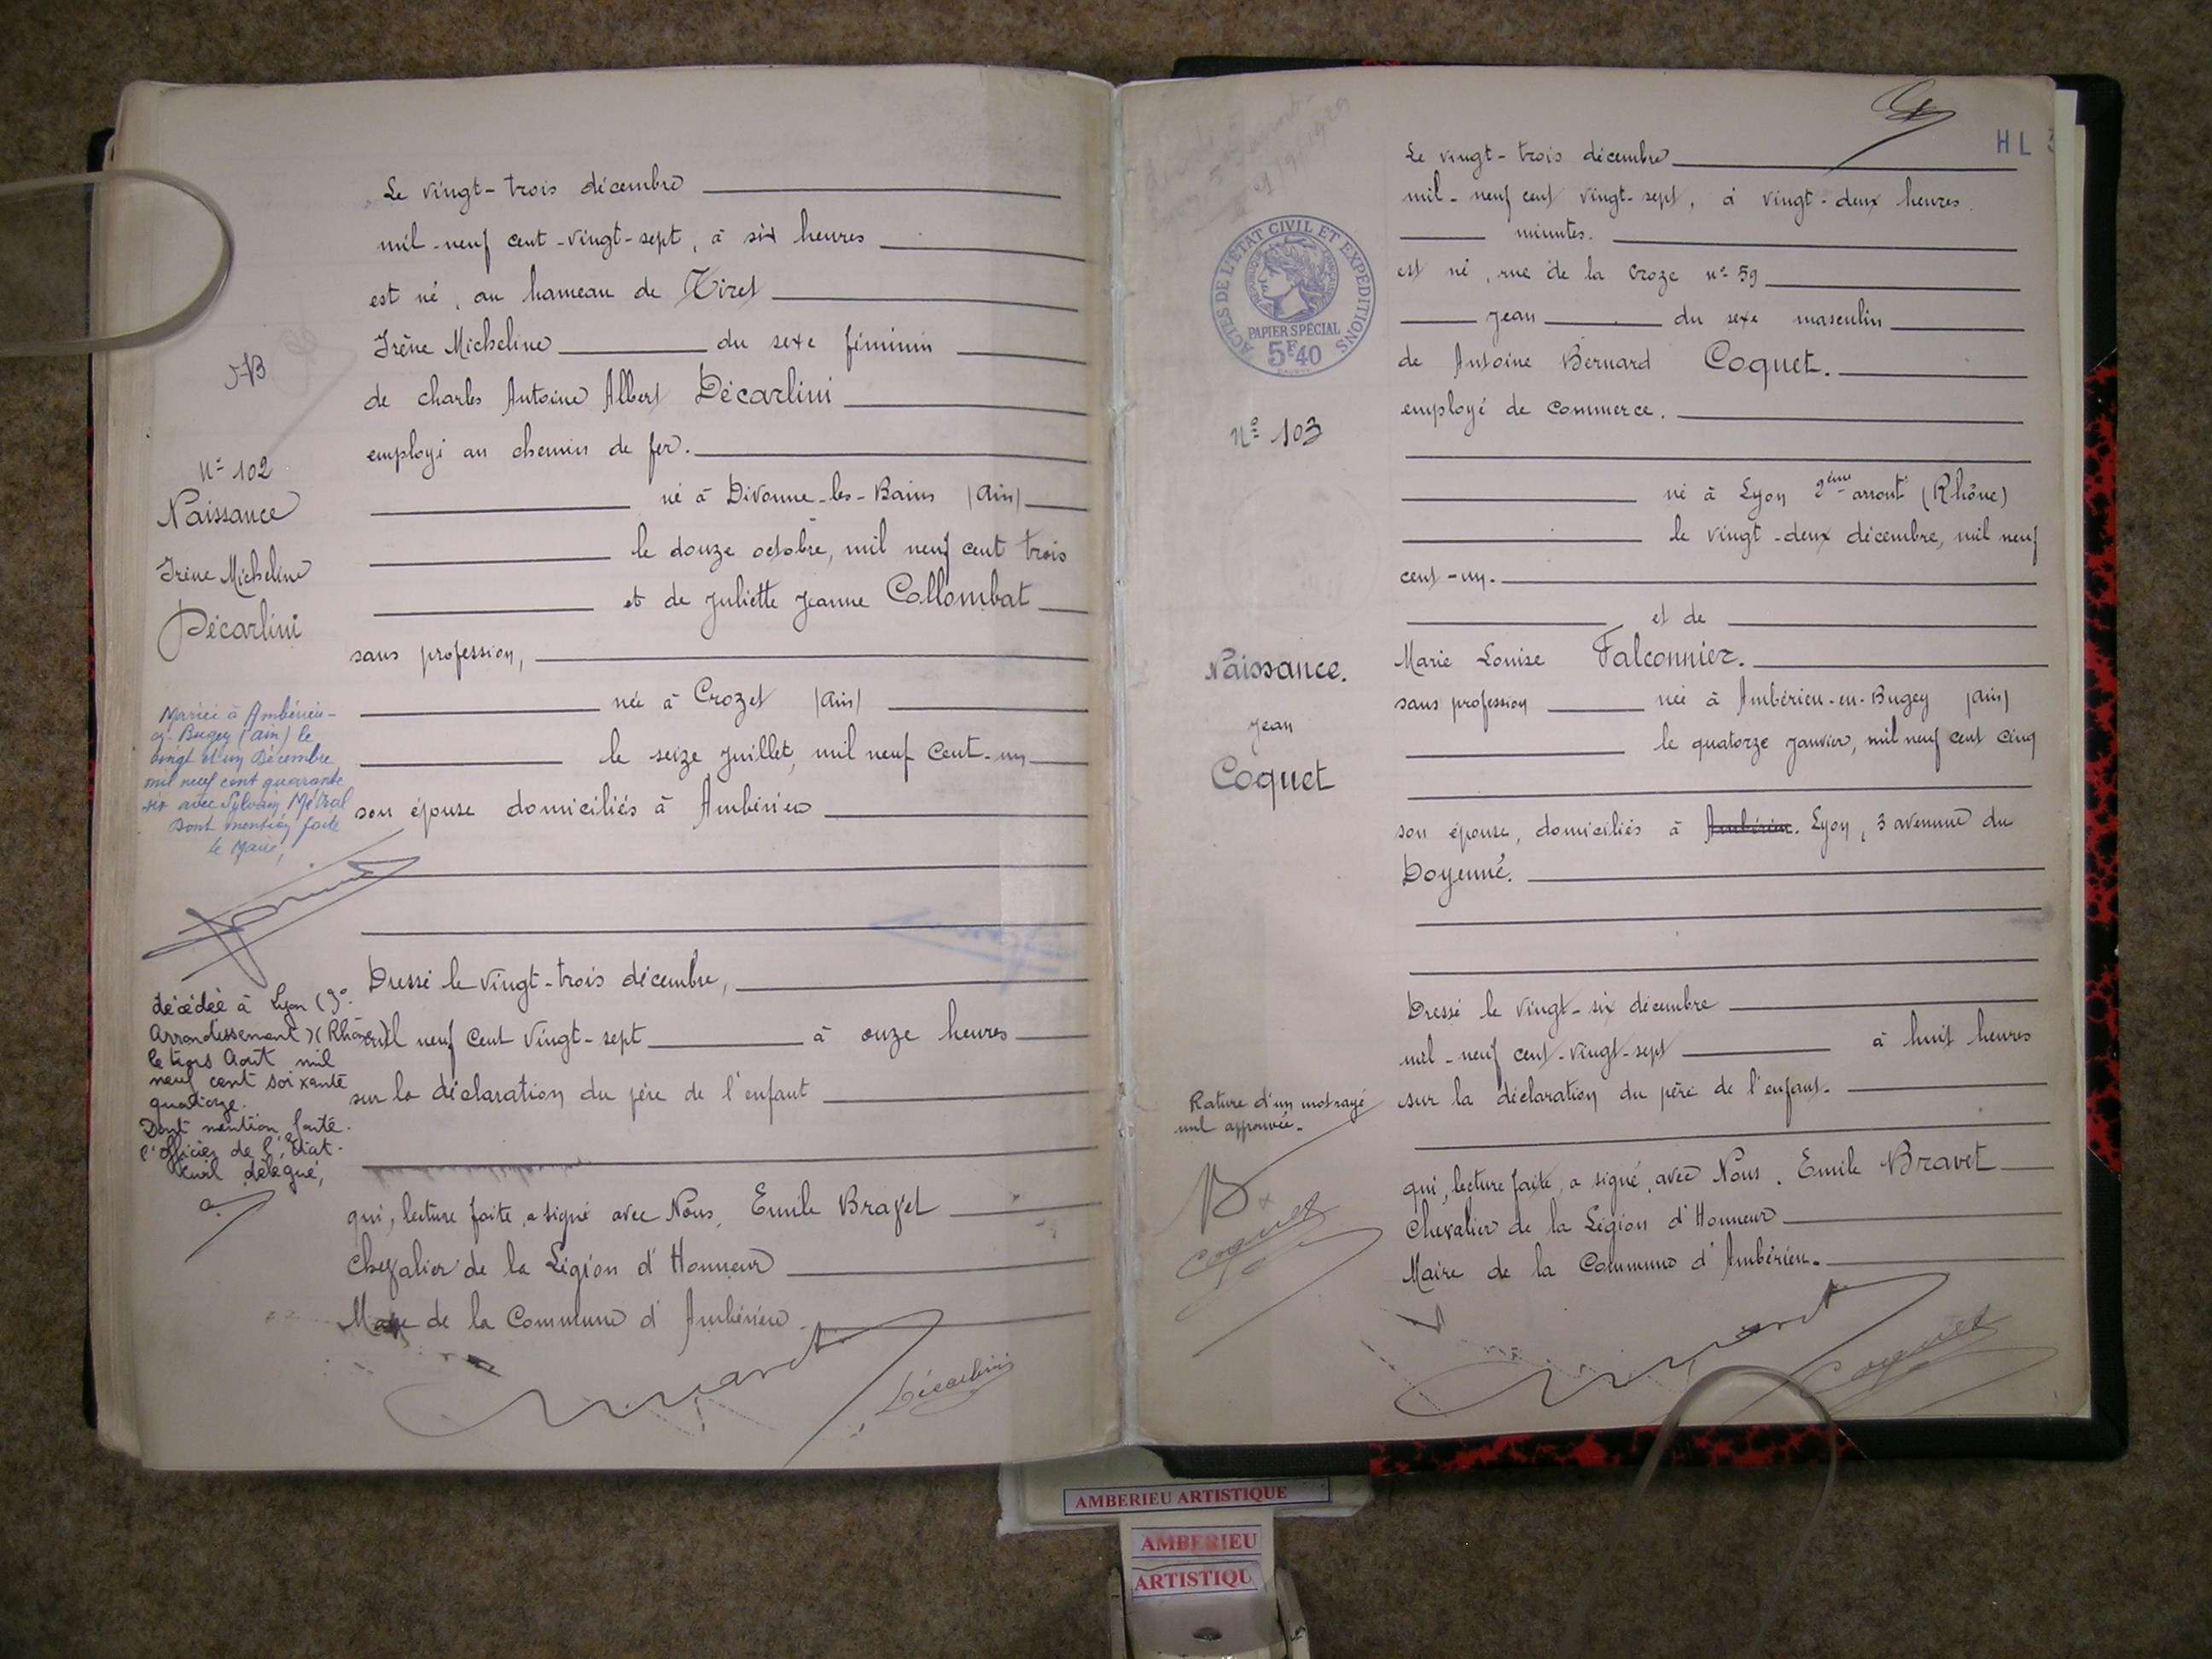 Le vingt-trois décembre
mil-neuf cent-vingt-sept, à six heures
est né, au hameau de Tiret
Irène Micheline du sexe féminin
de charles Antoine Albert Décarlini
employé au chemin de fer.
né à Divonne-les-Bains (Ain)
le douze octobre, mil neuf cent trois
et de Juliette Jeanne Collombat
sans profession,
née à Crozet (Ain)
le seize Juillet, mil neuf Cent-un
son épouse domiciliés à Ambérieu
Dressé le vingt-trois décembre,
mil neuf Cent Vingt-sept à onze heures
sur la déclaration du père de l'enfant
qui, lecture faite, a signé avec Nous, Emile Bravet
Chevalier de la Légion d'Honneur
Maire de la Commune d'Ambérieu.
Décarlini
N° 102
Naissance
Irène Micheline
Décarlini
Mariée à Ambérieu-
en-Bugey (Ain) le
vingt et un Décembre
mil neuf cent quarante
six avec Sylvain Métral
Dont mention faite
le Maire,
décédée à Lyon (9°
Arrondissement) (Rhône)
le trois Août mil
neuf cent soixante
quatorze.
Dont mention faite.
l'Officier de l'Etat-
Civil délégué,
HL 3
Le vingt-trois décembre
mil-neuf cent vingt-sept, à vingt-deux heures
minutes.
est né, rue de la Croze n° 59
Jean du sexe masculin
de Antoine Bernard Coquet.
employé de Commerce.
né à Lyon 2ème arront (Rhône)
le vingt-deux décembre, mil neuf
cent-un.
et de
Marie Louise Falconnier.
sans profession née à Ambérieu-en-Bugey (Ain)
le quatorze Janvier, mil neuf cent cinq
son épouse, domiciliés à Ambérieu. Lyon, 3 avenue du
Doyenné.
Dressé le vingt-six décembre
mil-neuf cent-vingt-sept à huit heures
sur la déclaration du père de l'enfant.
qui, lecture faite, a signé, avec Nous, Emile Bravet
Chevalier de la Légion d'Honneur
Maire de la Commune d'Ambérieu.
Coquet
ACTES DE L'ÉTAT CIVIL ET EXPÉDITIONS
PAPIER SPÉCIAL
5F40
N° 103
Naissance.
Jean
Coquet
Rature d'un mot rayé
nul approuvée.
Coquet
AMBERIEU ARTISTIQUE
AMBERIEU
ARTISTIQU